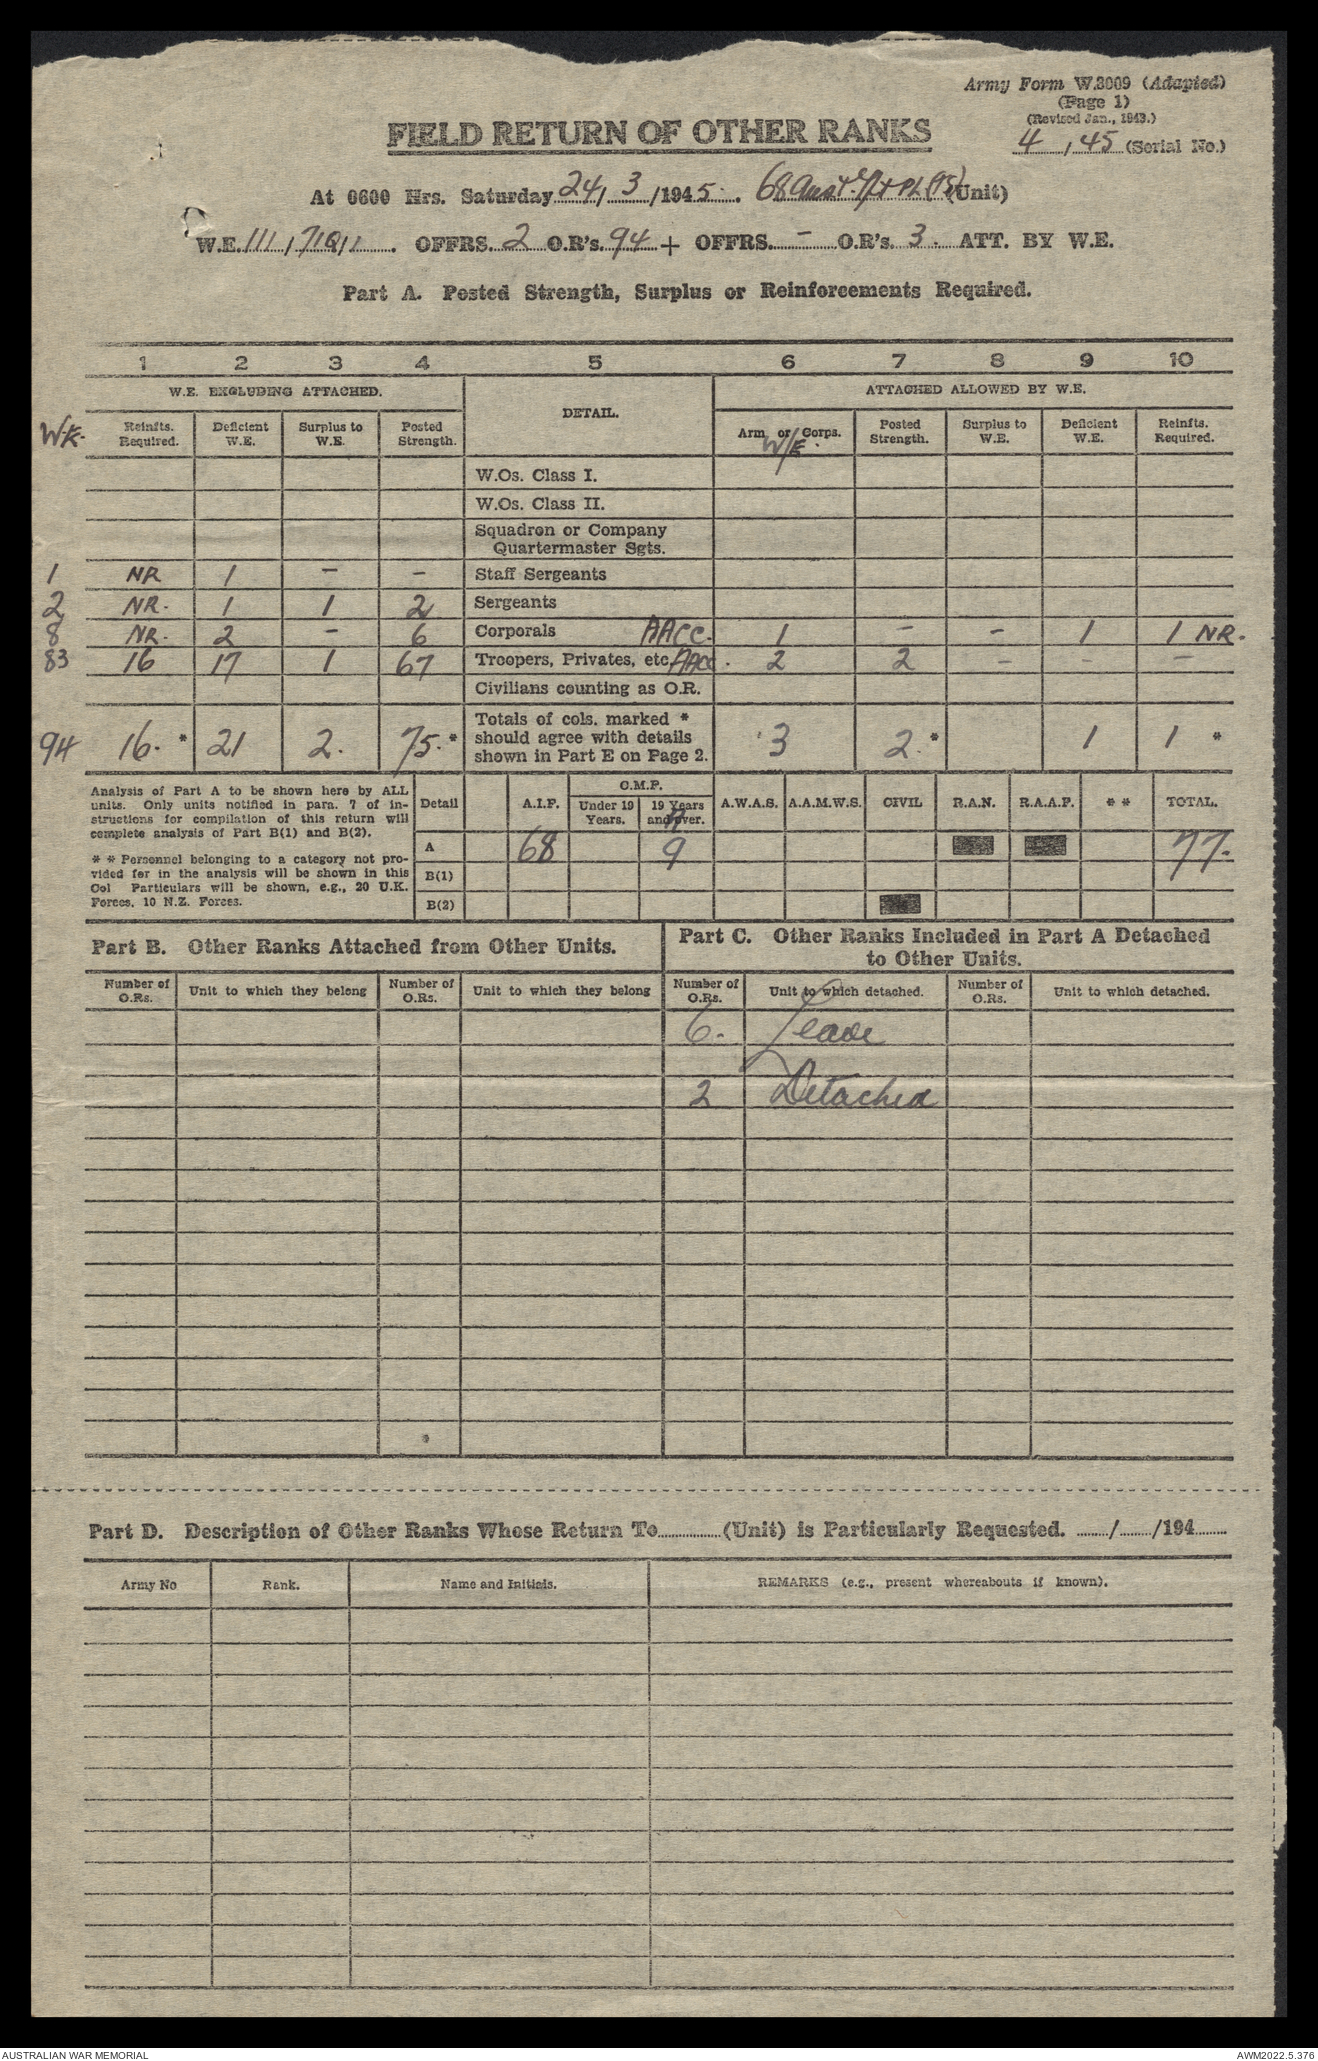 Army Form W.3009 (Adapted)
(Page 1)
(Revised Jan., 1943.)
4 / 45 (Serial No.)
FIELD RETURN OF OTHER RANKS
At 0600 Hrs. Saturday 24/ 3 /1945. 68 Aust (Unit)
W.E. III / OFFRS. 2 O.R's. 94 + OFFRS. - O.R's. 3. ATT. BY W.E.
Part A. Posted Strength, Surplus or Reinforcements Required.
1 2 3 4 5 6 7 8 9 10
W.E. EXCLUDING ATTACHED. DETAIL. ATTACHED ALLOWED BY W.E.
Reinfts. Required. Deficient W.E. Surplus to W.E. Posted Strength. Arm or Corps. W/E. Posted Strength. Surplus to W.E. Deficient W.E. Reinfts. Required.
W.Os. Class I.
W.Os. Class II.
Squadron or Company
Quartermaster Sgts.
1 NR 1 - - Staff Sergeants
2 NR. 1 1 2 Sergeants
8 NR. 2 - 6 Corporals AACC. 1 - - 1 1 NR.
83 16 17 1 67 Troopers, Privates, etc. AACC. 2 2 - - -
Civilians counting as O.R.
Totals of cols. marked *
should agree with details
shown in Part E on Page 2.
94 16. * 21 2. 75. * 3 2. * 1 1 *
Analysis of Part A to be shown here by ALL
units. Only units notified in para. 7 of in-
structions for compilation of this return will
complete analysis of Part B(1) and B(2).
* * Personnel belonging to a category not pro-
vided for in the analysis will be shown in this
Col Particulars will be shown, e.g., 20 U.K.
Forces, 10 N.Z. Forces.
Detail A.I.F. C.M.F. Under 19 Years. 19 Years and over. A.W.A.S. A.A.M.W.S. CIVIL R.A.N. R.A.A.F. * * TOTAL.
A 68 9 77.
B(1)
B(2)
Part B. Other Ranks Attached from Other Units.
Part C. Other Ranks Included in Part A Detached
to Other Units.
Number of O.Rs. Unit to which they belong Number of O.Rs. Unit to which they belong Number of O.Rs. Unit to which detached. Number of O.Rs. Unit to which detached.
6. Leave
2 Detached
Part D. Description of Other Ranks Whose Return To (Unit) is Particularly Requested. / /194
Army No Rank. Name and Initials. REMARKS (e.g., present whereabouts if known).
AUSTRALIAN WAR MEMORIAL
AWM2022.5.376